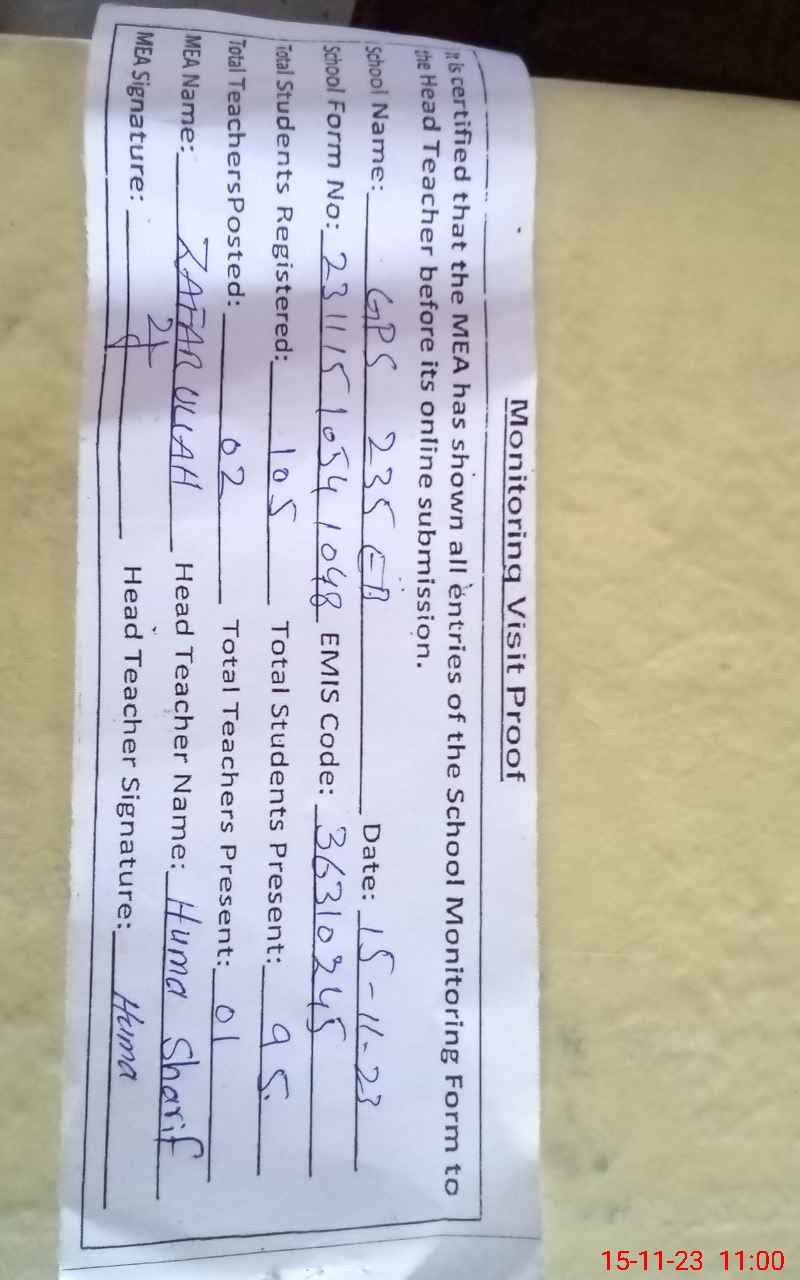 Monitoring Visit Proof
It is certified that the MEA has shown all entries of the School Monitoring Form to
the Head Teacher before its online submission.
School Name: GPS 235 EB Date: 15-11-23
School Form No: 23111510541048 EMIS Code: 36310245
Total Students Registered: 105 Total Students Present: 95
Total TeachersPosted: 02 Total Teachers Present: 01
MEA Name: ZAFAR ULLAH Head Teacher Name: Huma Sharif
MEA Signature: Head Teacher Signature: Huma
15-11-23 11:00